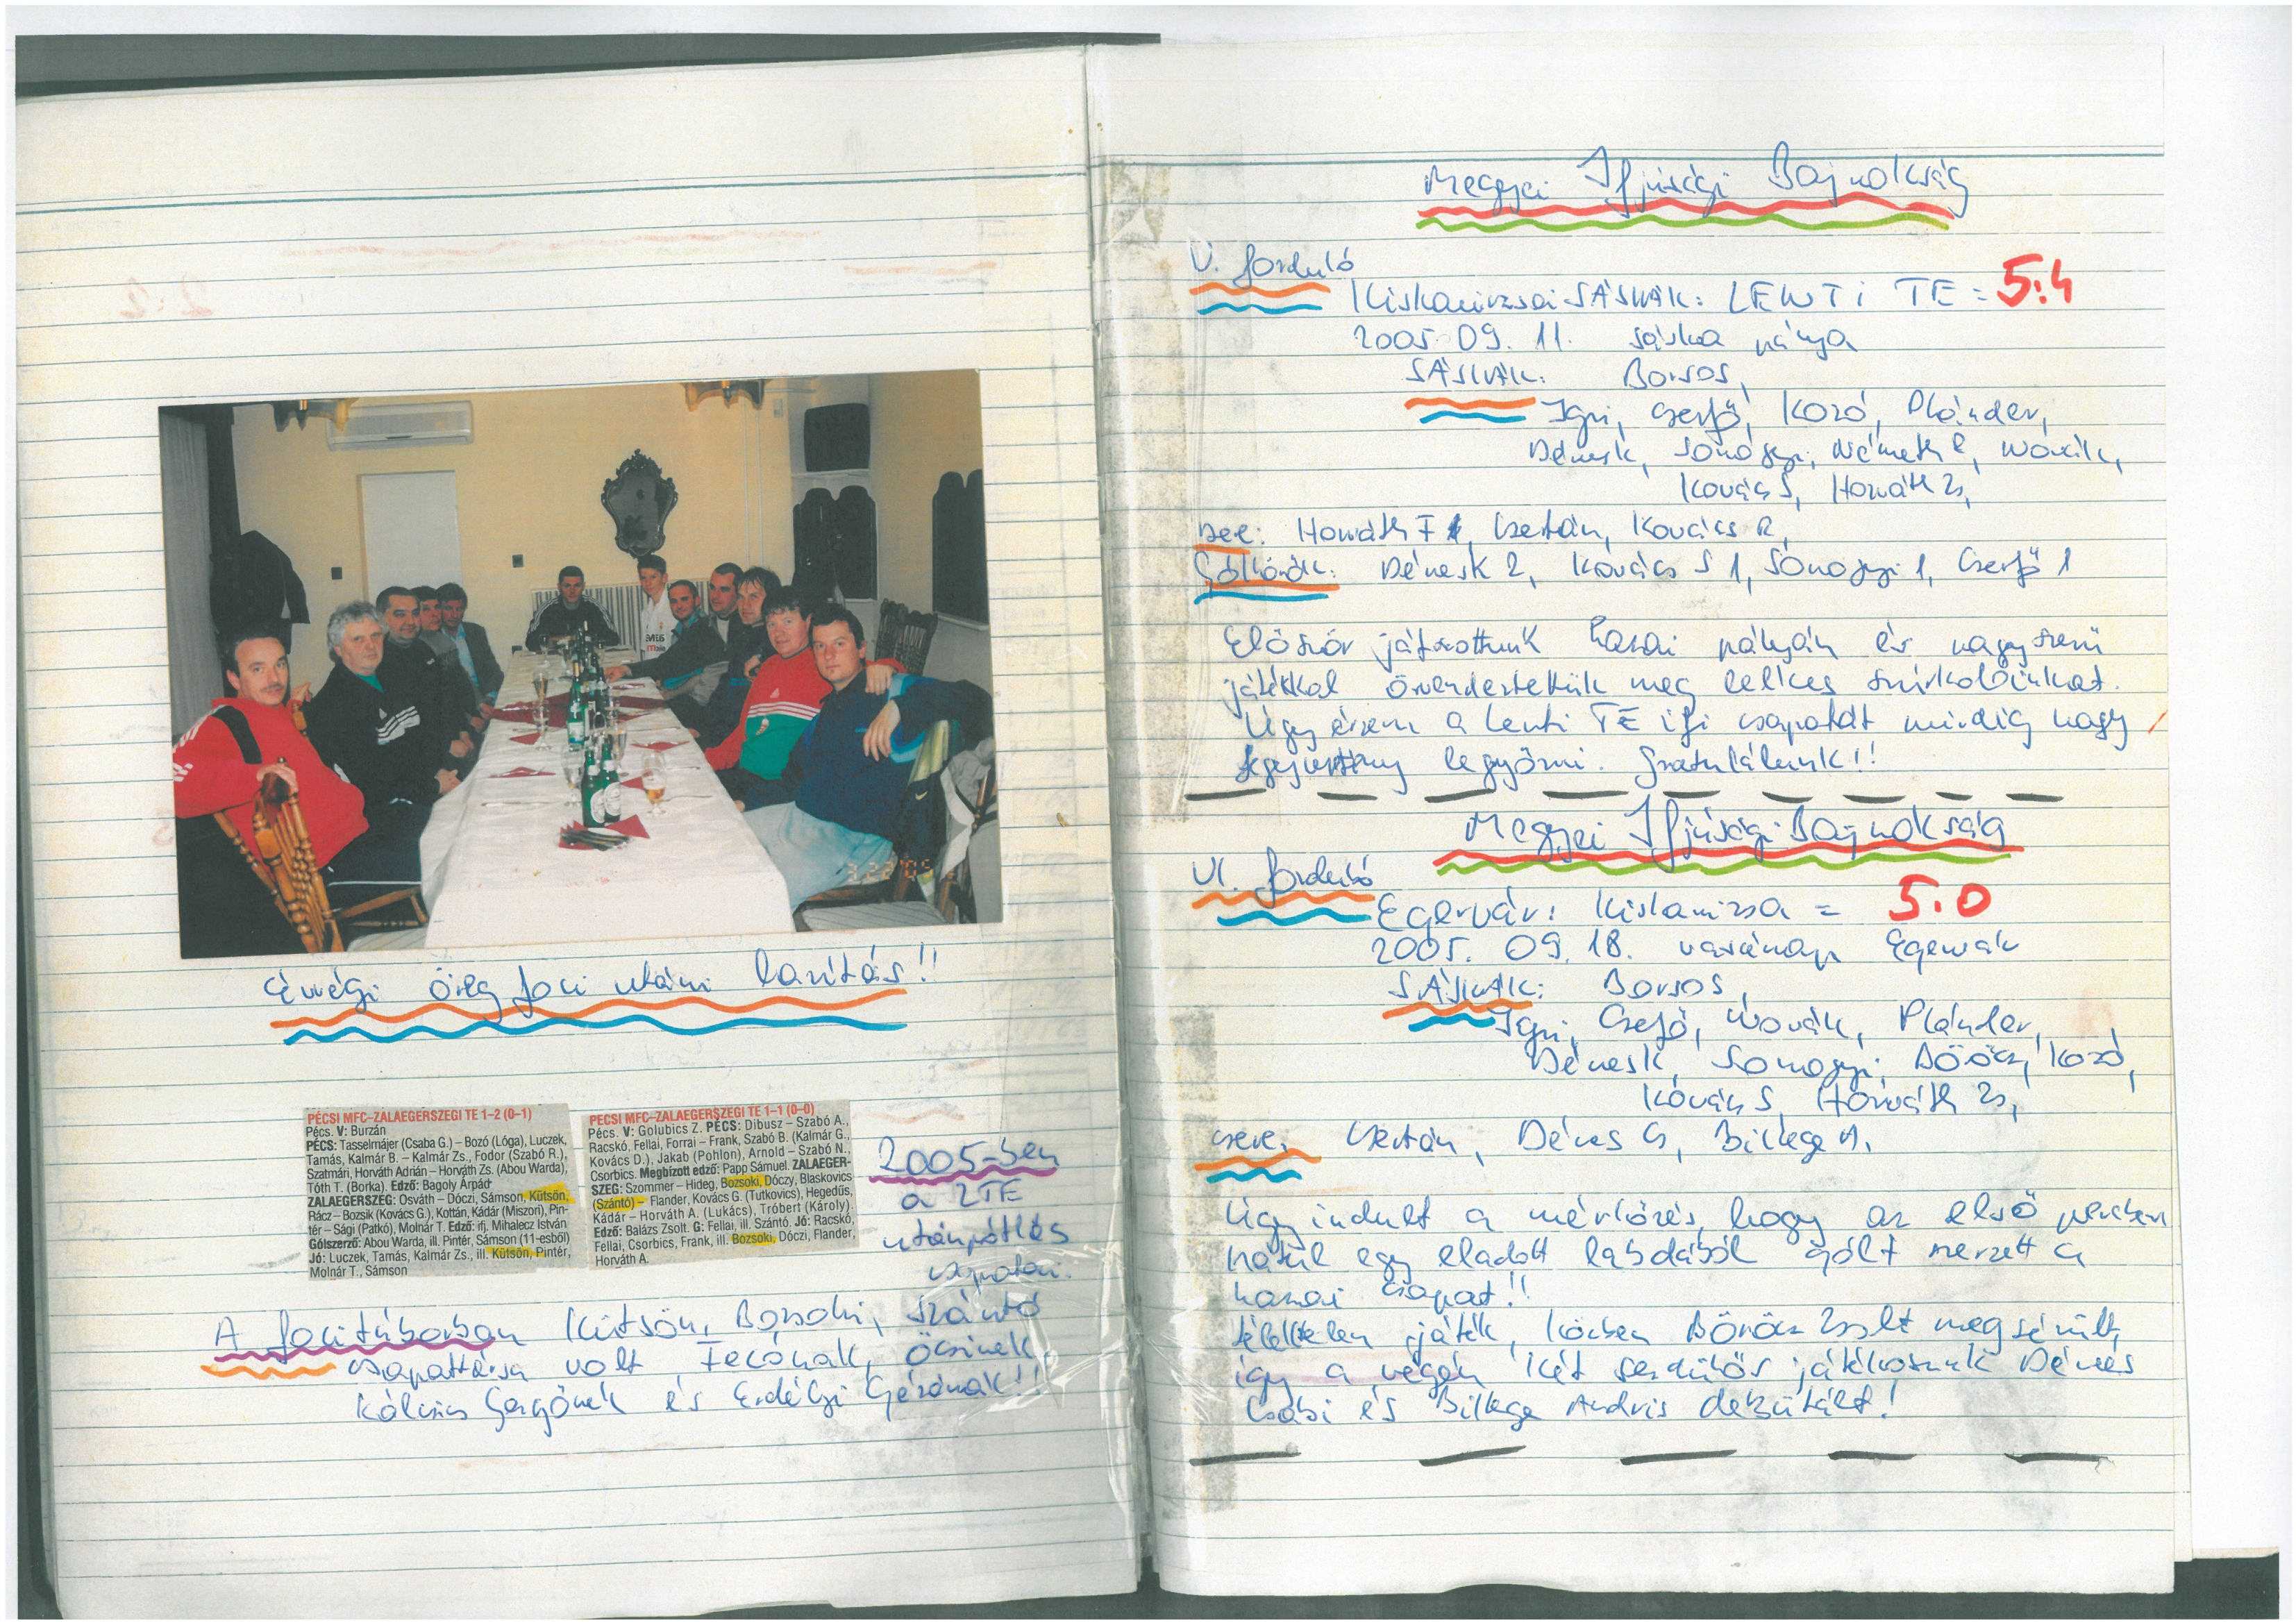 Évvégi öreg foci utáni lazítás!!
PÉCSI MFC–ZALAEGERSZEGI TE 1–2 (0–1)
Pécs. V: Burzán
PÉCS: Tasselmájer (Csaba G.) – Bozó (Lóga), Luczek,
Tamás, Kalmár B. – Kalmár Zs., Fodor (Szabó R.),
Szatmári, Horváth Adrián – Horváth Zs. (Abou Warda),
Tóth T. (Borka). Edző: Bagoly Árpád
ZALAEGERSZEG: Osváth – Dóczi, Sámson, Kütsön,
Rácz – Bozsik (Kovács G.), Kottán, Kádár (Miszori), Pin-
tér – Sági (Patkó), Molnár T. Edző: ifj. Mihalecz István
Gólszerző: Abou Warda, ill. Pintér, Sámson (11-esből)
Jó: Luczek, Tamás, Kalmár Zs., ill. Kütsön, Pintér,
Molnár T., Sámson
PÉCSI MFC–ZALAEGERSZEGI TE 1–1 (0–0)
Pécs. V: Golubics Z. PÉCS: Dibusz – Szabó A.,
Racskó, Fellai, Forrai – Frank, Szabó B. (Kalmár G.,
Kovács D.), Jakab (Pohlon), Arnold – Szabó N.,
Csorbics. Megbízott edző: Papp Sámuel. ZALAEGER-
SZEG: Szommer – Hideg, Bozsoki, Dóczy, Blaskovics
(Szántó) – Flander, Kovács G. (Tutkovics), Hegedűs,
Kádár – Horváth A. (Lukács), Tróbert (Károly).
Edző: Balázs Zsolt. G: Fellai, ill. Szántó. Jó: Racskó,
Fellai, Csorbics, Frank, ill. Bozsoki, Dóczi, Flander,
Horváth A.
2005-ben
a ZTE
utánpótlás
csapatai.
A focitáborban Kütsön, Bozsoki, Szántó
csapattársa volt Fecónak, Öcsinek,
Kálcsics Gergőnek és Erdélyi Gézának!!
Megyei Ifjúsági Bajnokság
V. forduló
Kiskanizsai SÁSKÁK: LENTI TE = 5:4
2005. 09. 11. sáska pálya
SÁSKÁK: Borsos,
Igri, Cserfő, Kozó, Plánder,
Dénesk, Somogyi, Németh, Novák,
Kovács S, Horváth Zs,
csere: Horváth F, Csertán, Kovács R,
Góllövők: Dénesk 2, Kovács S 1, Somogyi 1, Cserfő 1
Először játszottunk hazai pályán és nagyszerű
játékkal örvendeztettük meg lelkes szurkolóinkat.
Úgy érzem a Lenti TE ifi csapatát mindig nagy
fegyvertény legyőzni. Gratulálunk!!
Megyei Ifjúsági Bajnokság
VI. forduló
Egervár: Kiskanizsa = 5:0
2005. 09. 18. vasárnap Egervár
SÁSKÁK: Borsos,
Igri, Cserfő, Novák, Plánder,
Dénesk, Somogyi, Böröcz, Kozó,
Kovács S, Horváth Zs,
csere: Csertán, Dénes Cs, Billege A.
Úgy indult a mérkőzés, hogy az első percben
nálul egy eladott labdából gólt szerzett a
hazai csapat!!
Lélektelen játék, közben Böröcz Zsolt megsérült,
így a végén két serdülős játékosunk Dénes
Csabi és Billege Andris debütált!